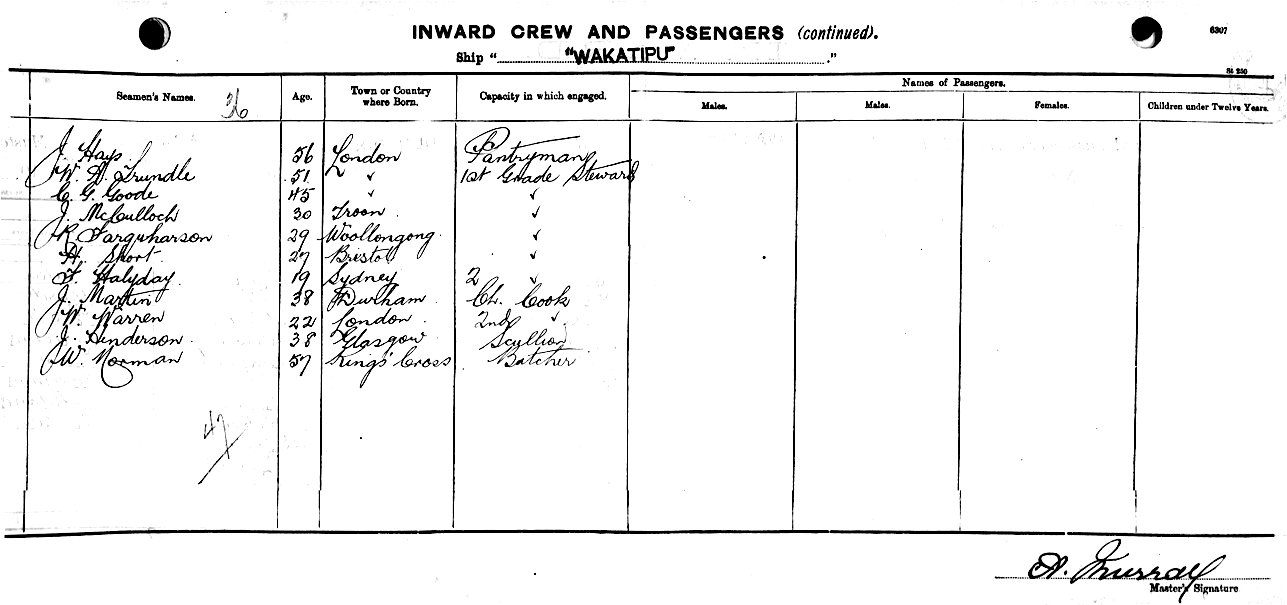 INWARD CREW AND PASSENGERS (continued).
6307
Ship "WAKATIPU"."
St 250
Seamen's Names. 36 Age. Town or Country where Born. Capacity in which engaged. Names of Passengers.
Males. Males. Females. Children under Twelve Years.
J. Hays 56 London Pantryman
W. A. Trundle 51 ✓ 1st Grade Steward
C. G. Goode 45 ✓ ✓
J. McCulloch 30 Troon ✓
R Farquharson 29 Woollongong ✓
H. Short 27 Bristol ✓
F. Halyday 19 Sydney 2 ✓
J. Martin 38 Durham Ch. Cook
W. Warren 22 London 2nd ✓
J. Henderson 38 Glasgow Scullion
W. Norman 57 King's Cross Butcher
47
A. Murray
Master's Signature